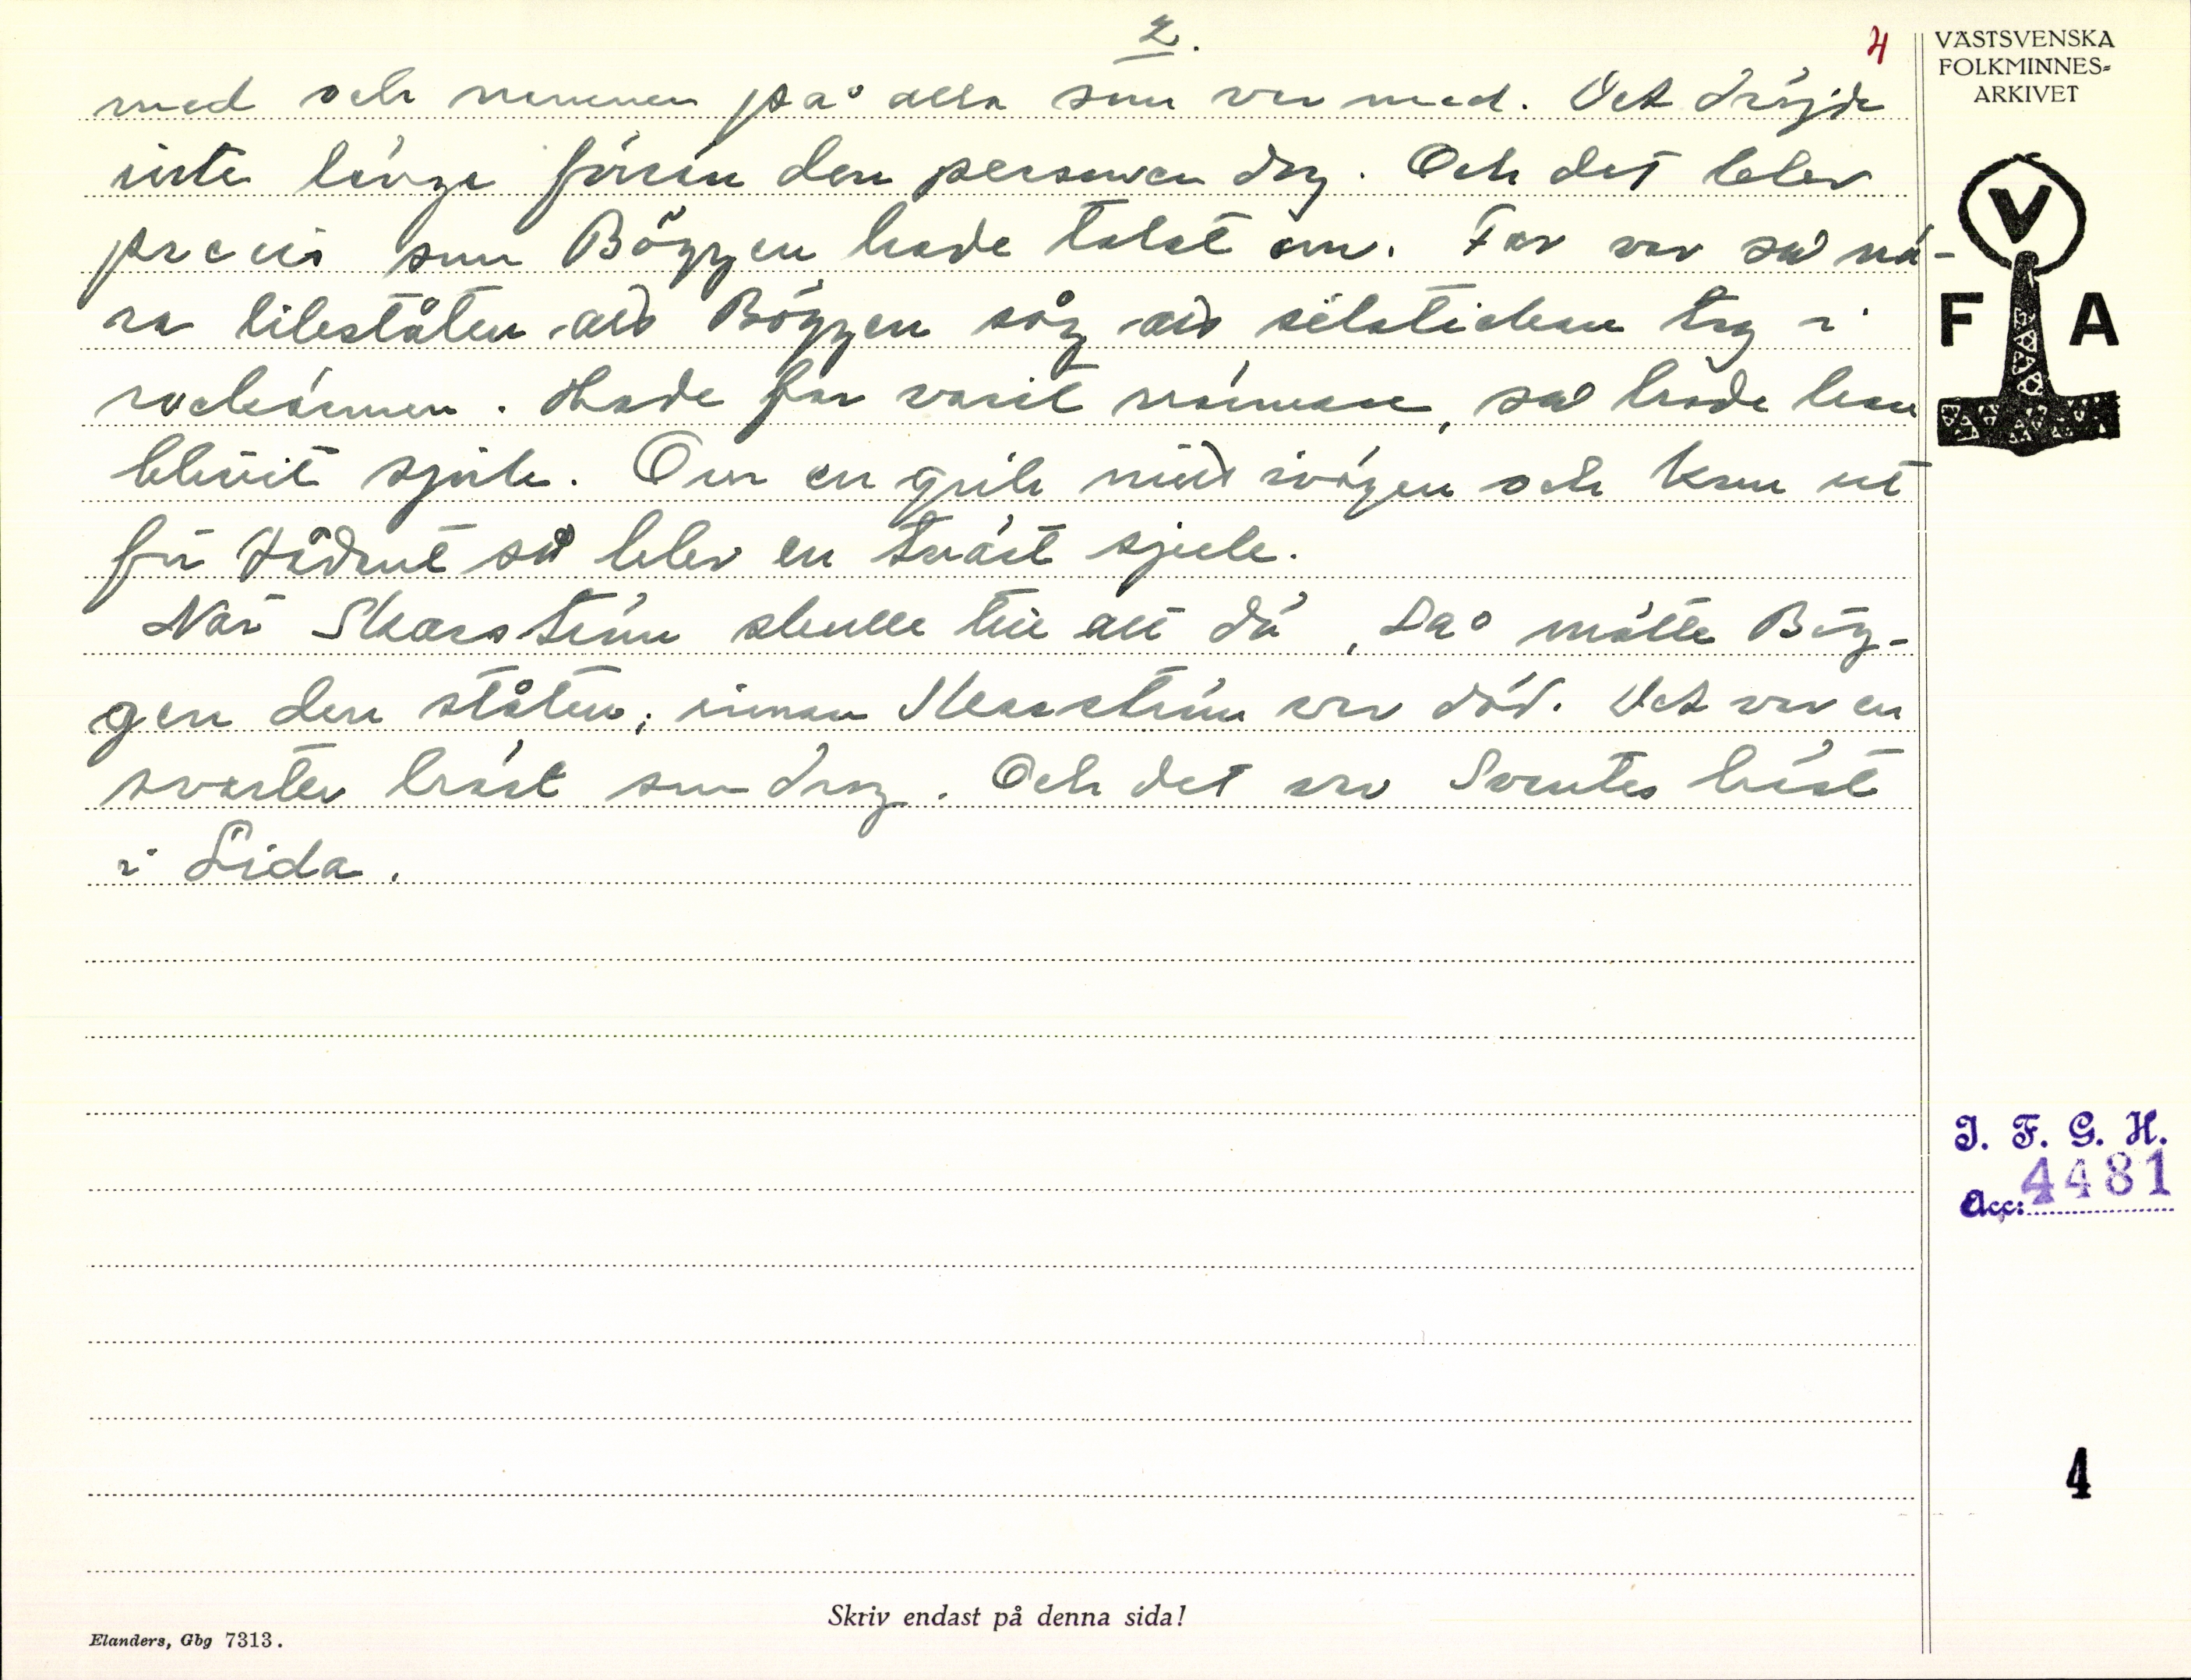 2.
4
VÄSTSVENSKA
FOLKMINNES-
ARKIVET
med och namnen på alla som var med. Det dröjde
inte länge förrän den personen dog. Och det blev
precis som Böggen hade talat om. Far var så nä-
ra likståten att Böggen såg att silaticken tog i
rockärmen. Hade far varit närmare, så hade han
blivit sjuk. Om en gick mitt i vägen och kom ut
för sådant så blev en tvärt sjuk.
När Skarström skulle till att dö, så mötte Bög-
gen den ståten, innan Skarström var död. Det var en
svarter häst som drog. Och det var Svantes häst
i Lida.
V
F A
I. F. G. H.
Acc: 4481
4
Skriv endast på denna sida!
Elanders, Gbg 7313.